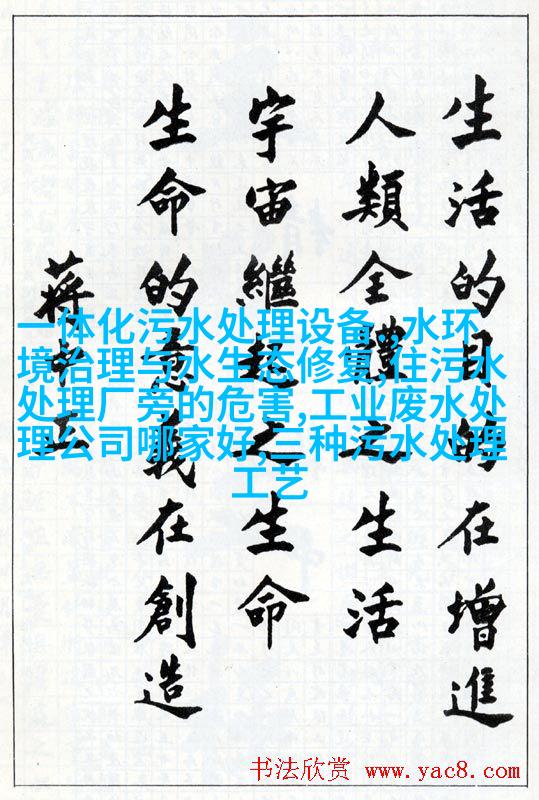 生活的目的在增進
人類全體之生活
宇宙繼起之生命
生命的意義在創造
蔣中正
一体化污水处理设备.,水环
境治理与水生态修复,住污水
处理厂旁的危害,工业废水处
理公司哪家好,三种污水处理
工艺
书法欣赏 www.yac8.com